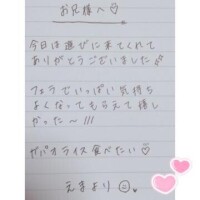 お兄様へ♡
今日は遊びに来てくれて
ありがとうございました
フェラでいっぱい気持ち
よくなってもらえて嬉し
かった〜!!!
ガパオライス食べたい♡
えまより